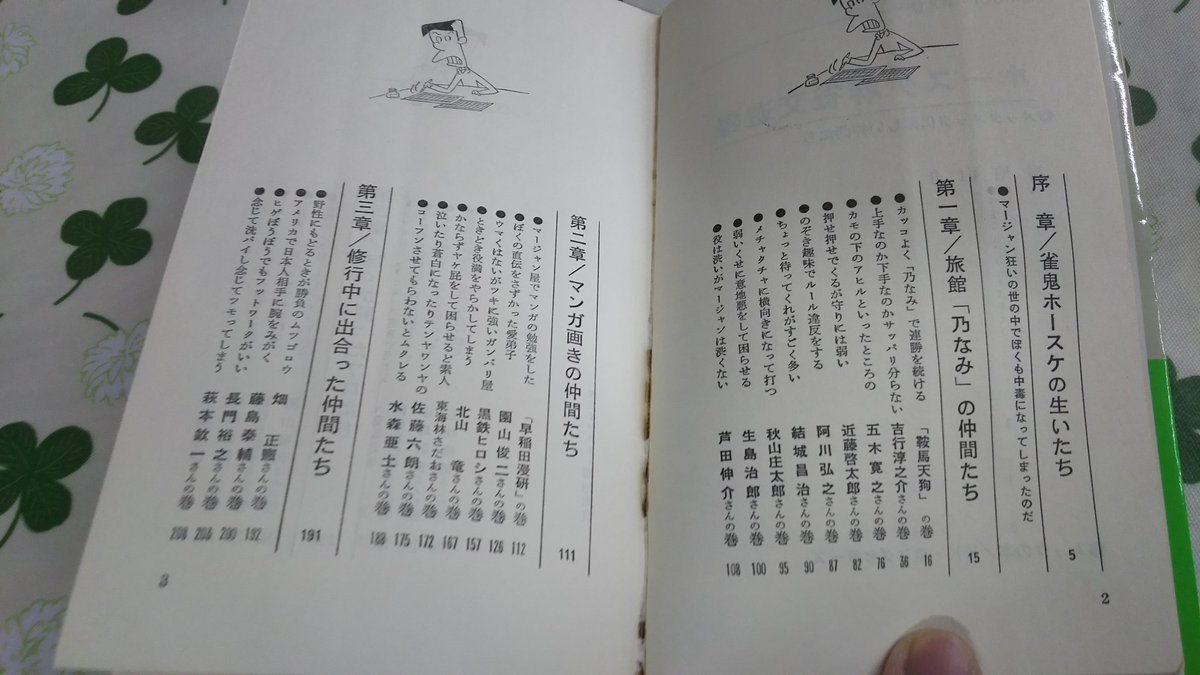 序　章/雀鬼ホースケの生いたち 5
●マージャン狂いの世の中でぼくも中毒になってしまったのだ
第一章/旅館「乃なみ」の仲間たち 15
●カッコよく「乃なみ」で連勝を続ける 「鞍馬天狗」の巻 16
●上手なのか下手なのかサッパリ分らない 吉行淳之介さんの巻 36
●カモの下のアヒルといったところの 五木寛之さんの巻 76
●押せ押せでくるが守りには弱い 近藤啓太郎さんの巻 82
●のぞき趣味でルール違反をする 阿川弘之さんの巻 87
●ちょっと待ってくれがすごく多い 結城昌治さんの巻 90
●メチャクチャに横向きになって打つ 秋山庄太郎さんの巻 95
●弱いくせに意地悪をして困らせる 生島治郎さんの巻 100
●役は渋いがマージャンは渋くない 芦田伸介さんの巻 108
2
第二章/マンガ画きの仲間たち 111
●マージャン屋でマンガの勉強をした 「早稲田漫研」の巻 112
●ぼくの直伝をさずかった愛弟子 園山俊二さんの巻 126
●ウマくはないがツキに強いガンバリ屋 黒鉄ヒロシさんの巻 157
●ときどき役満をやらかしてしまう 北山　竜さんの巻 167
●かならずヤケ屁をして困らせると素人 東海林さだおさんの巻 172
●泣いたり蒼白になったりテンヤワンヤの 佐藤六朗さんの巻 175
●コーフンさせてもらわないとムクレる 水森亜土さんの巻 188
第三章/修行中に出合った仲間たち 191
●野性にもとるときが勝負のムツゴロウ 畑　正憲さんの巻 192
●アメリカで日本人相手に腕をみがく 藤島泰輔さんの巻 200
●ヒゲぼうぼうでもフットワークがいい 長門裕之さんの巻 204
●念じて洗パイし念じてツモってしまう 萩本欽一さんの巻 208
3